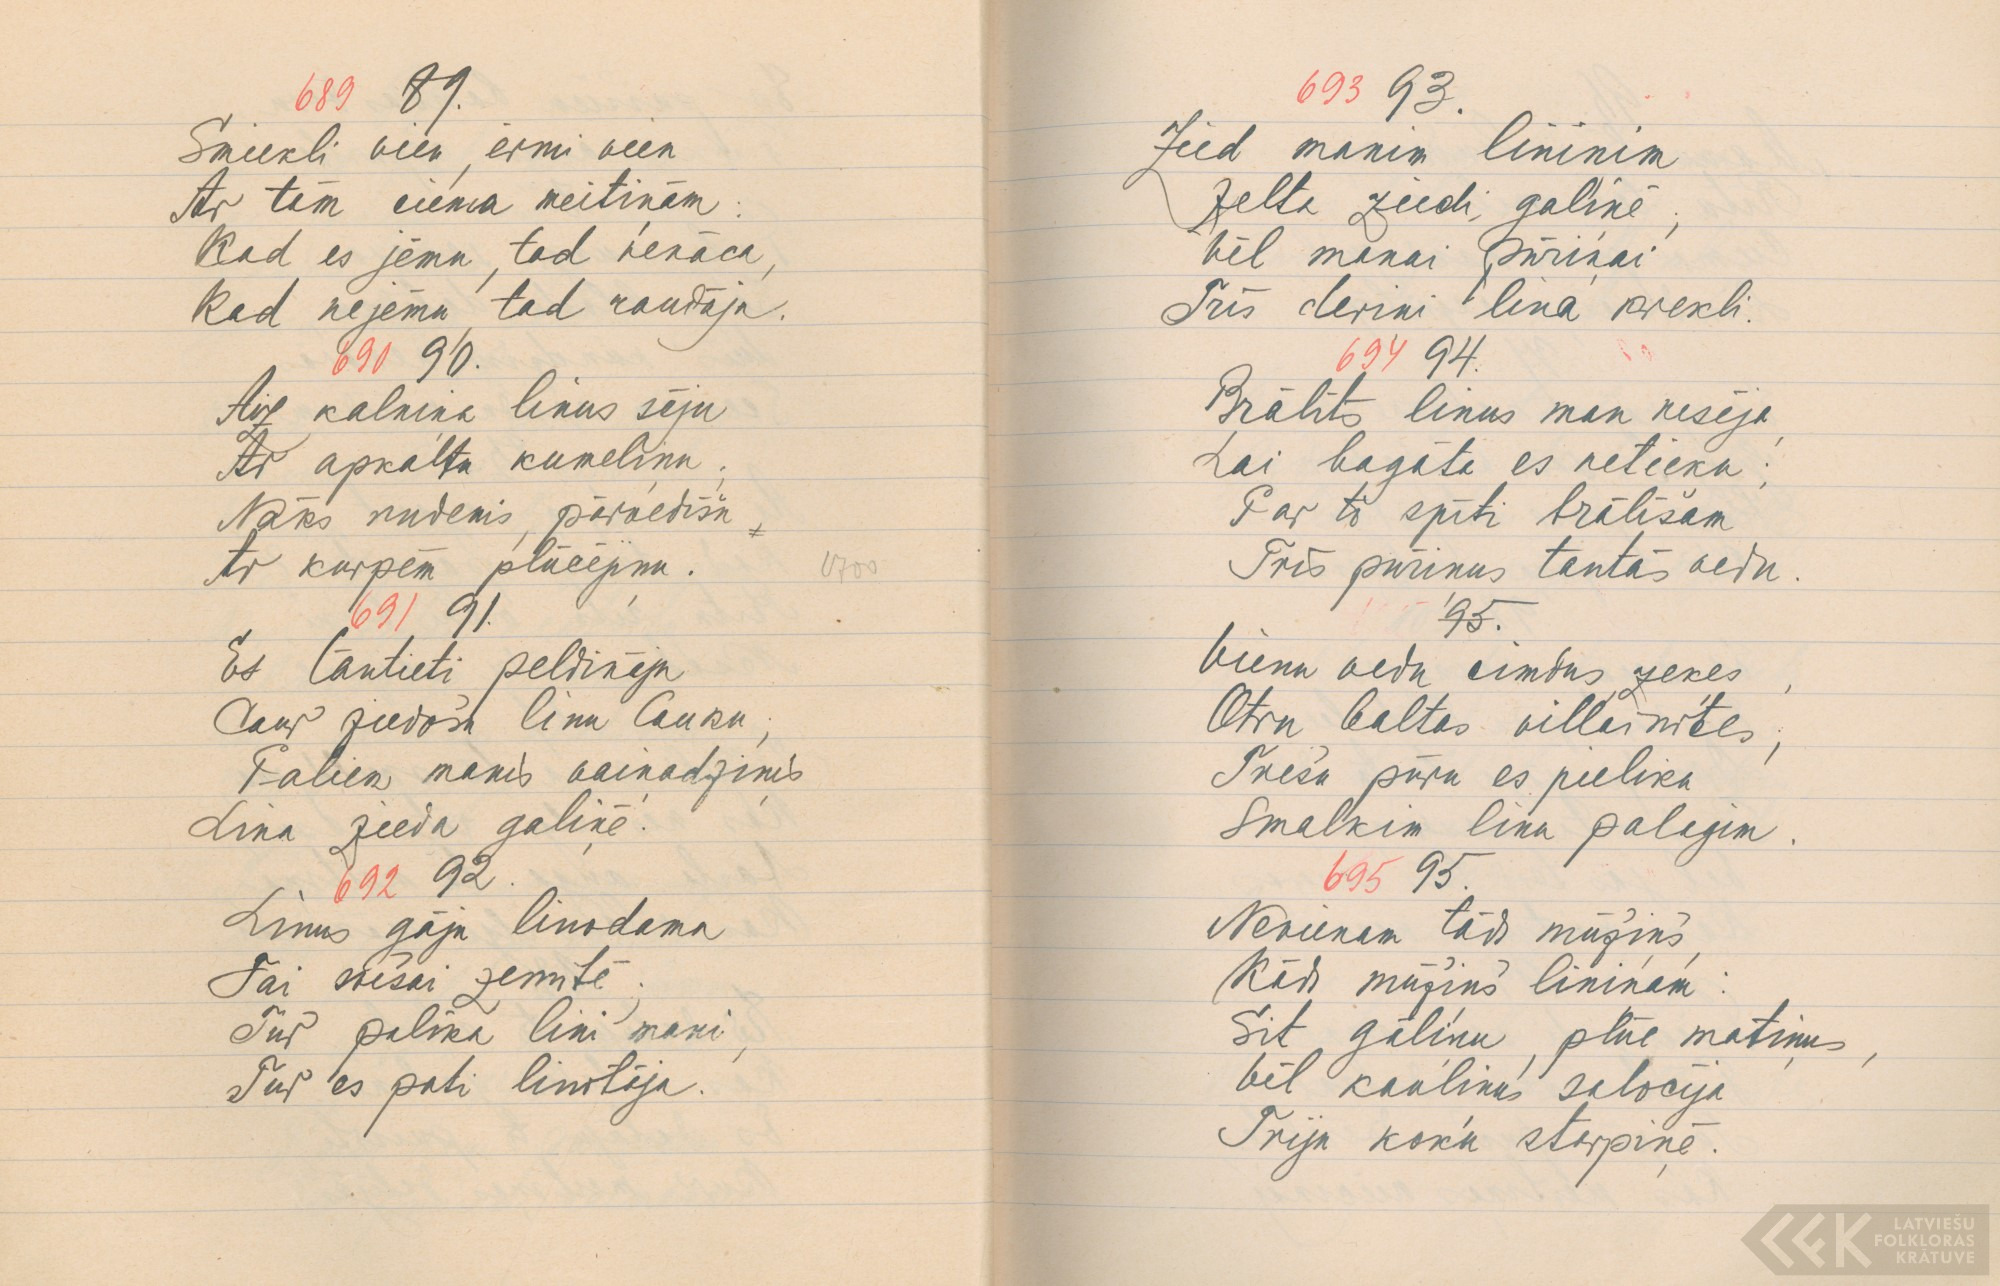 689 89.
Smiekli vien, ērmi vien
Ar tām ciema meitinām:
Kad es jēmu, tad nenāca,
Kad nejēmu, tad raudāja.
690 90.
Aiz kalniņa linus sēju
Ar apkaltu kumeliņu;
Nāks rudenis, pārvedīšu
Ar kurpēm plūcējiņu.
691 91.
Es tautieti peldināju
Caur ziedošu linu lauku;
Paliek manis vainadziņis
Lina zieda galiņē.
692 92.
Linus gāju linodama
Tai mēsai zemītē;
Tur palika lini mani,
Tur es pati linotāja.
693 93.
Zied manim liniņim
Zelta ziedi galiņē;
Vēl manai pūriņai
Trīs deviņi lina krekli.
694 94.
Brālīts linus man nesēja,
Lai bagāta es netieku;
Par to spīti brālīšam
Trīs pūriņus tautās vedu.
95.
Vienu vedu cimdus, zekes,
Otru baltas villainītes;
Trešu pūru es pieliku
Smalkim linu palagim.
695 95.
Nevienam tāds mūžiņš,
Kāds mūžiņš liniņam:
Sit galiņu, plūc matiņus,
Vēl kauliņus salocīja
Triju koku starpiņē.
LATVIEŠU
FOLKLORAS
KRĀTUVE